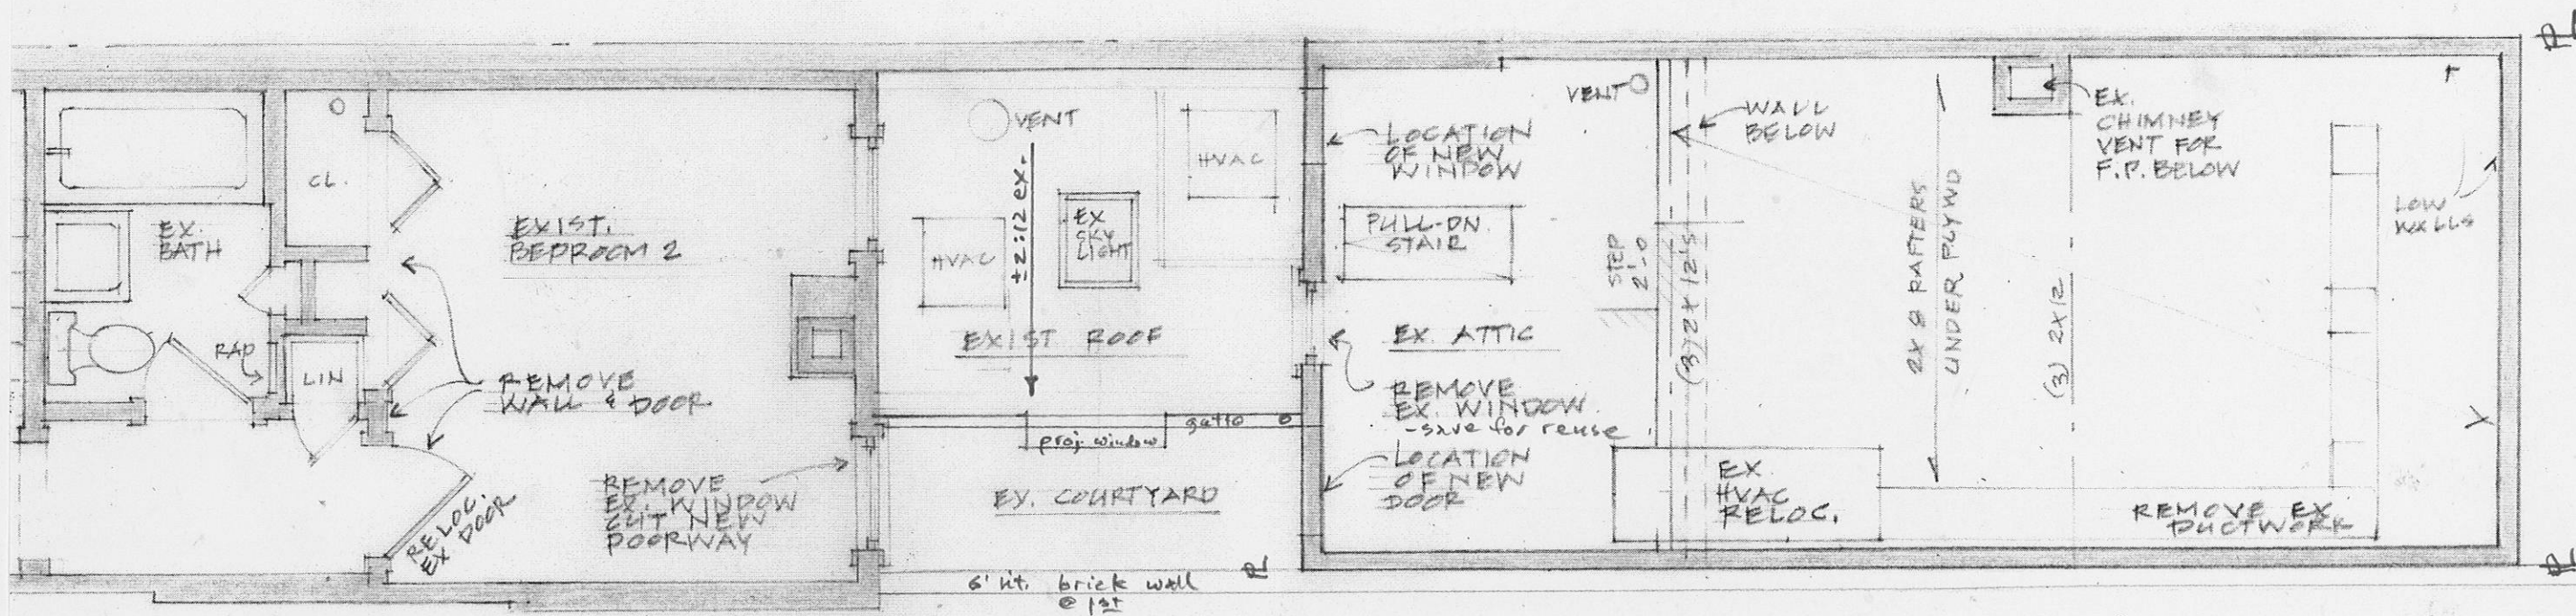 CL.
EX.
BATH
EXIST.
BEDROOM 2
RAD
LIN
REMOVE
WALL & DOOR
RELOC.
EX DOOR
REMOVE
EX. WINDOW
CUT NEW
DOORWAY
VENT
HVAC
±2:12 ex.
EX
SKY
LIGHT
HVAC
EXIST ROOF
proj. window
EX. COURTYARD
6' ht. brick wall
@ 1st
LOCATION
OF NEW
WINDOW
PULL-DN.
STAIR
EX. ATTIC
REMOVE
EX. WINDOW
-save for reuse
LOCATION
OF NEW
DOOR
VENT
WALL
BELOW
STEP
2'-0
(3) 2X12's
EX
HVAC
RELOC.
2X8 RAFTERS
UNDER PLYWD
(3) 2X12
EX.
CHIMNEY
VENT FOR
F.P. BELOW
LOW
WALLS
REMOVE EX
DUCTWORK